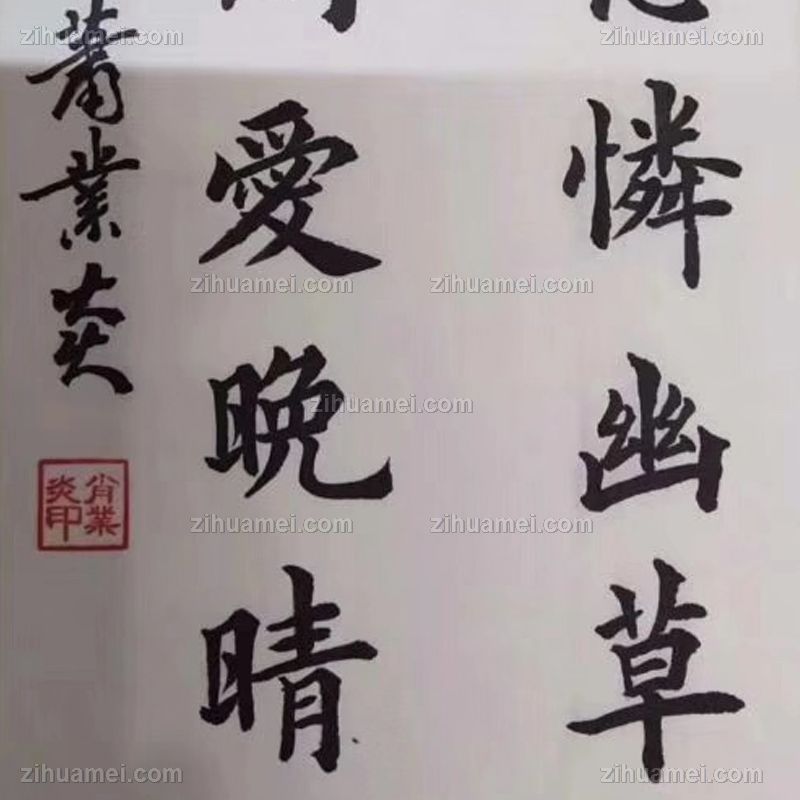 憐幽草
愛晚晴
蕭業炎
肖業
炎印
zihuamei.com
zihuamei.com
zihuamei.com
zihuamei.com
zihuamei.com
zihuamei.com
zihuamei.com
zihuamei.com
zihuamei.com
zihuamei.com